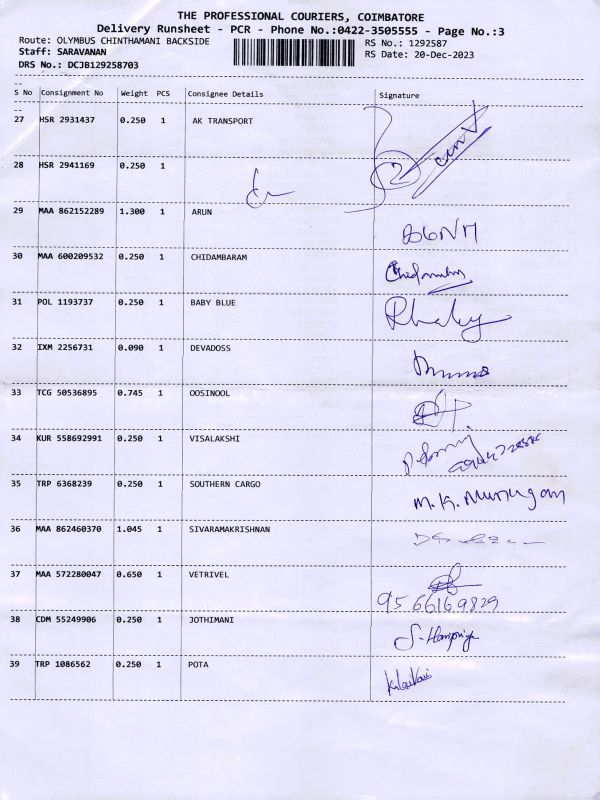 THE PROFESSIONAL COURIERS, COIMBATORE
Delivery Runsheet - PCR - Phone No.:0422-3505555 - Page No.:3
Route: OLYMBUS CHINTHAMANI BACKSIDE RS No.: 1292587
Staff: SARAVANAN RS Date: 20-Dec-2023
DRS No.: DCJB129258703
S No Consignment No Weight PCS Consignee Details Signature
27 HSR 2931437 0.250 1 AK TRANSPORT
28 HSR 2941169 0.250 1
29 MAA 862152289 1.300 1 ARUN
30 MAA 600209532 0.250 1 CHIDAMBARAM
31 POL 1193737 0.250 1 BABY BLUE
32 IXM 2256731 0.090 1 DEVADOSS
33 TCG 50536895 0.745 1 OOSINOOL
34 KUR 558692991 0.250 1 VISALAKSHI
35 TRP 6368239 0.250 1 SOUTHERN CARGO M.K.Murugan
36 MAA 862460370 1.045 1 SIVARAMAKRISHNAN
37 MAA 572280047 0.650 1 VETRIVEL 9566169829
38 CDM 55249906 0.250 1 JOTHIMANI
39 TRP 1086562 0.250 1 POTA